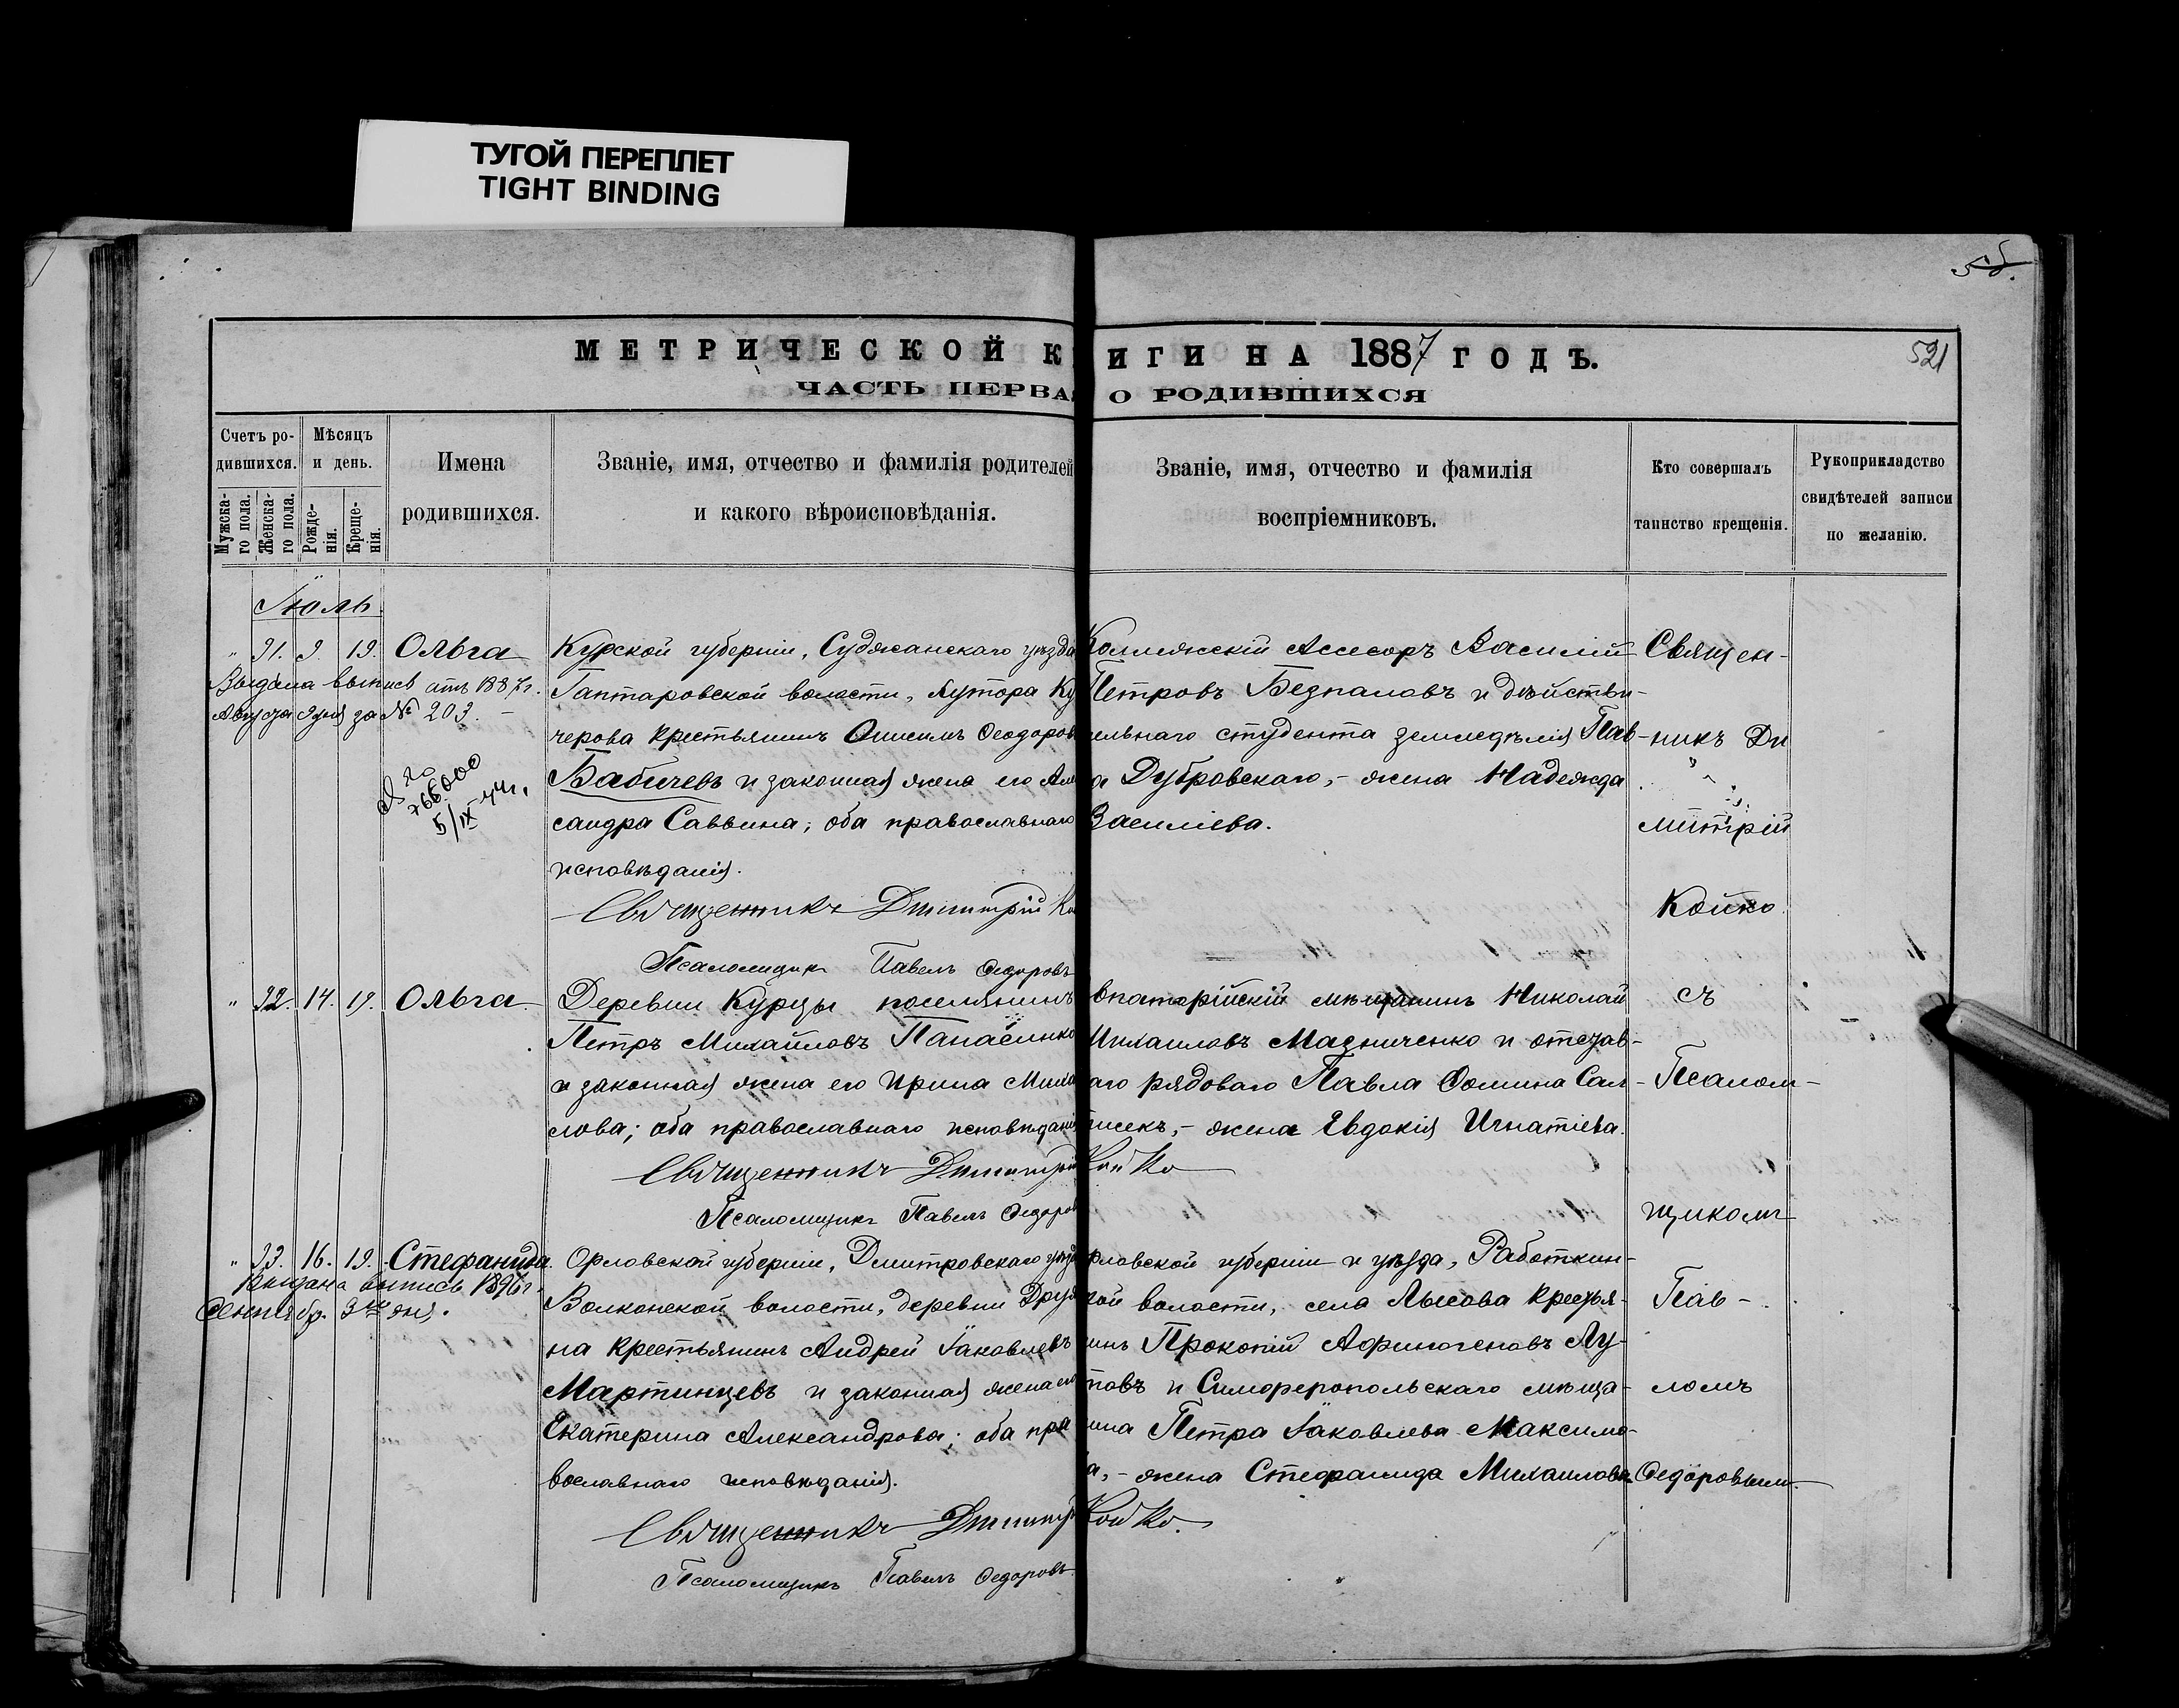 ТУГОЙ ПЕРЕПЛЕТ
TIGHT BINDING
521
МЕТРИЧЕСКОЙ К ИГИ НА 1887 ГОДЪ.
ЧАСТЬ ПЕРВАЯ О РОДИВШИХСЯ
Счетъ ро-
дившихся.
Мужска-
го пола.
Женска-
го пола.
Мѣсяцъ
и день.
Рожде-
нія.
Креще-
нія.
Имена
родившихся.
Званіе, имя, отчество и фамилія родителей
и какого вѣроисповѣданія.
Званіе, имя, отчество и фамилія
воспріемниковъ.
Кто совершалъ
таинство крещенія.
Рукоприкладство
свидѣтелей записи
по желанію.
Іюль
" 31. 9. 19. Ольга
Выдана выпись отъ 1887 г.
Августа 9 дня за № 203. -
766000
5/IX 44г.
Курской губерніи, Суджанскаго уѣзда
Гаптаровской волости, хутора Ку
черова крестьянинъ Онисимъ Ѳеодоров
Бабичевъ и законная жена его Але
сандра Саввина; оба православнаго
исповѣданія.
Священникъ Димитрій Ко
Псаломщикъ Павелъ Ѳедоровъ
Коллежскій Ассесоръ Василій
Петровъ Безпаловъ и дѣйстви-
тельнаго студента земледѣлія Пав-
а Дубровскаго, - жена Надежда
Василіева.
" 32. 14. 19. Ольга
Деревни Курцы поселянинъ
Петръ Михайловъ Панасенко
и законная жена его Ирина Миха
лова; оба православнаго исповѣданія
Священникъ Димитрій Койко
Псаломщикъ Павелъ Ѳедоров
впаторійскій мѣщанинъ Николай
Михаиловъ Мазниченко и отстав-
аго рядоваго Павла Ѳомина Сал-
писекъ, - жена Евдокія Игнатіева.
" 33. 16. 19. Стефанида
Выдана выпись 1896 г.
Сентябр. 9го дня.
Орловской губерніи, Дмитровскаго уѣзд
Волконской волости, деревни Друж
на крестьянинъ Андрей Іаковлевъ
Мартинцевъ и законная жена его
Екатерина Александрова; оба пра
вославнаго исповѣданія.
Священникъ Димитр Койко.
Псаломщикъ Павелъ Ѳедоровъ
рловской губерніи и уѣзда, Работкин-
кой волости, села Лысова крестья-
инъ Прокопій Афиногеновъ Лу-
повъ и Симферопольскаго мѣща-
ина Петра Іаковлева Максимо-
а, - жена Стефанида Михаилова.
Священ-
никъ Ди
митрій
Койко
съ
Псалом-
щикомъ
Пав-
ломъ
Ѳедоровымъ